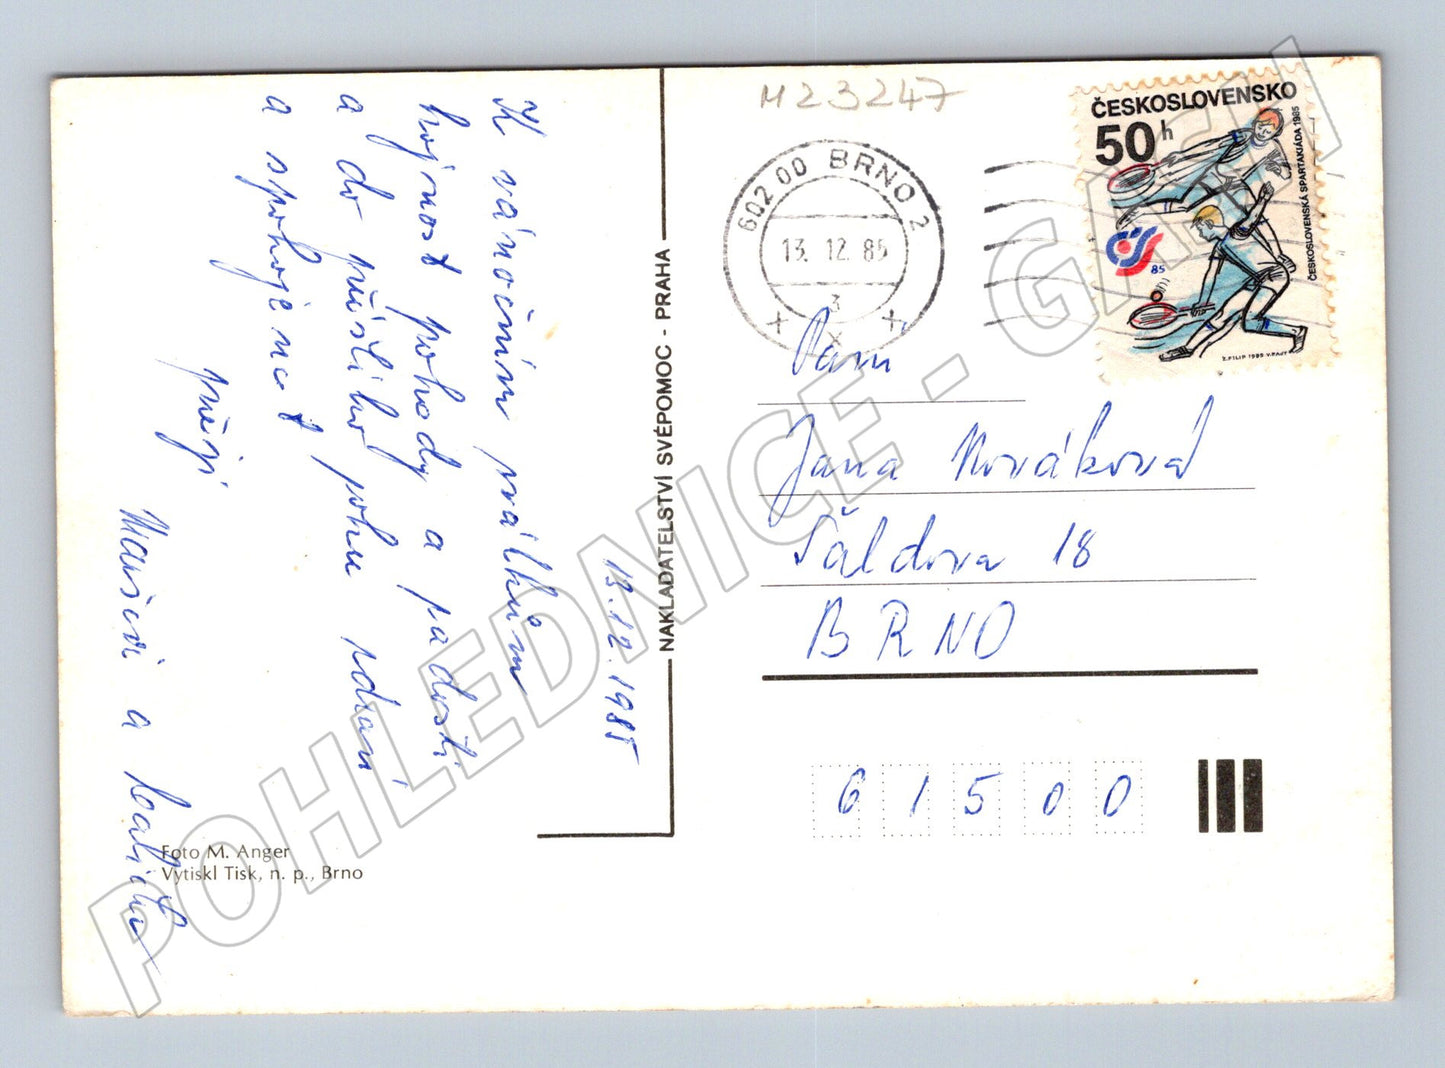 M23247
ČESKOSLOVENSKO
50h
ČESKOSLOVENSKÁ SPARTAKIÁDA 1985
85
Z.FILIP 1985 V.FAJT
602 00 BRNO 2
13. 12. 85
3
13.12.1985
K vánočním svátkům
hojnost pohody a radosti
a do příštího roku zdraví
a spokojenost
přeji
a
NAKLADATELSTVÍ SVÉPOMOC - PRAHA
Paní
Jana Nováková
Šaldova 18
BRNO
61500
Foto M. Anger
Vytiskl Tisk, n. p., Brno
POHLEDNICE - GASH